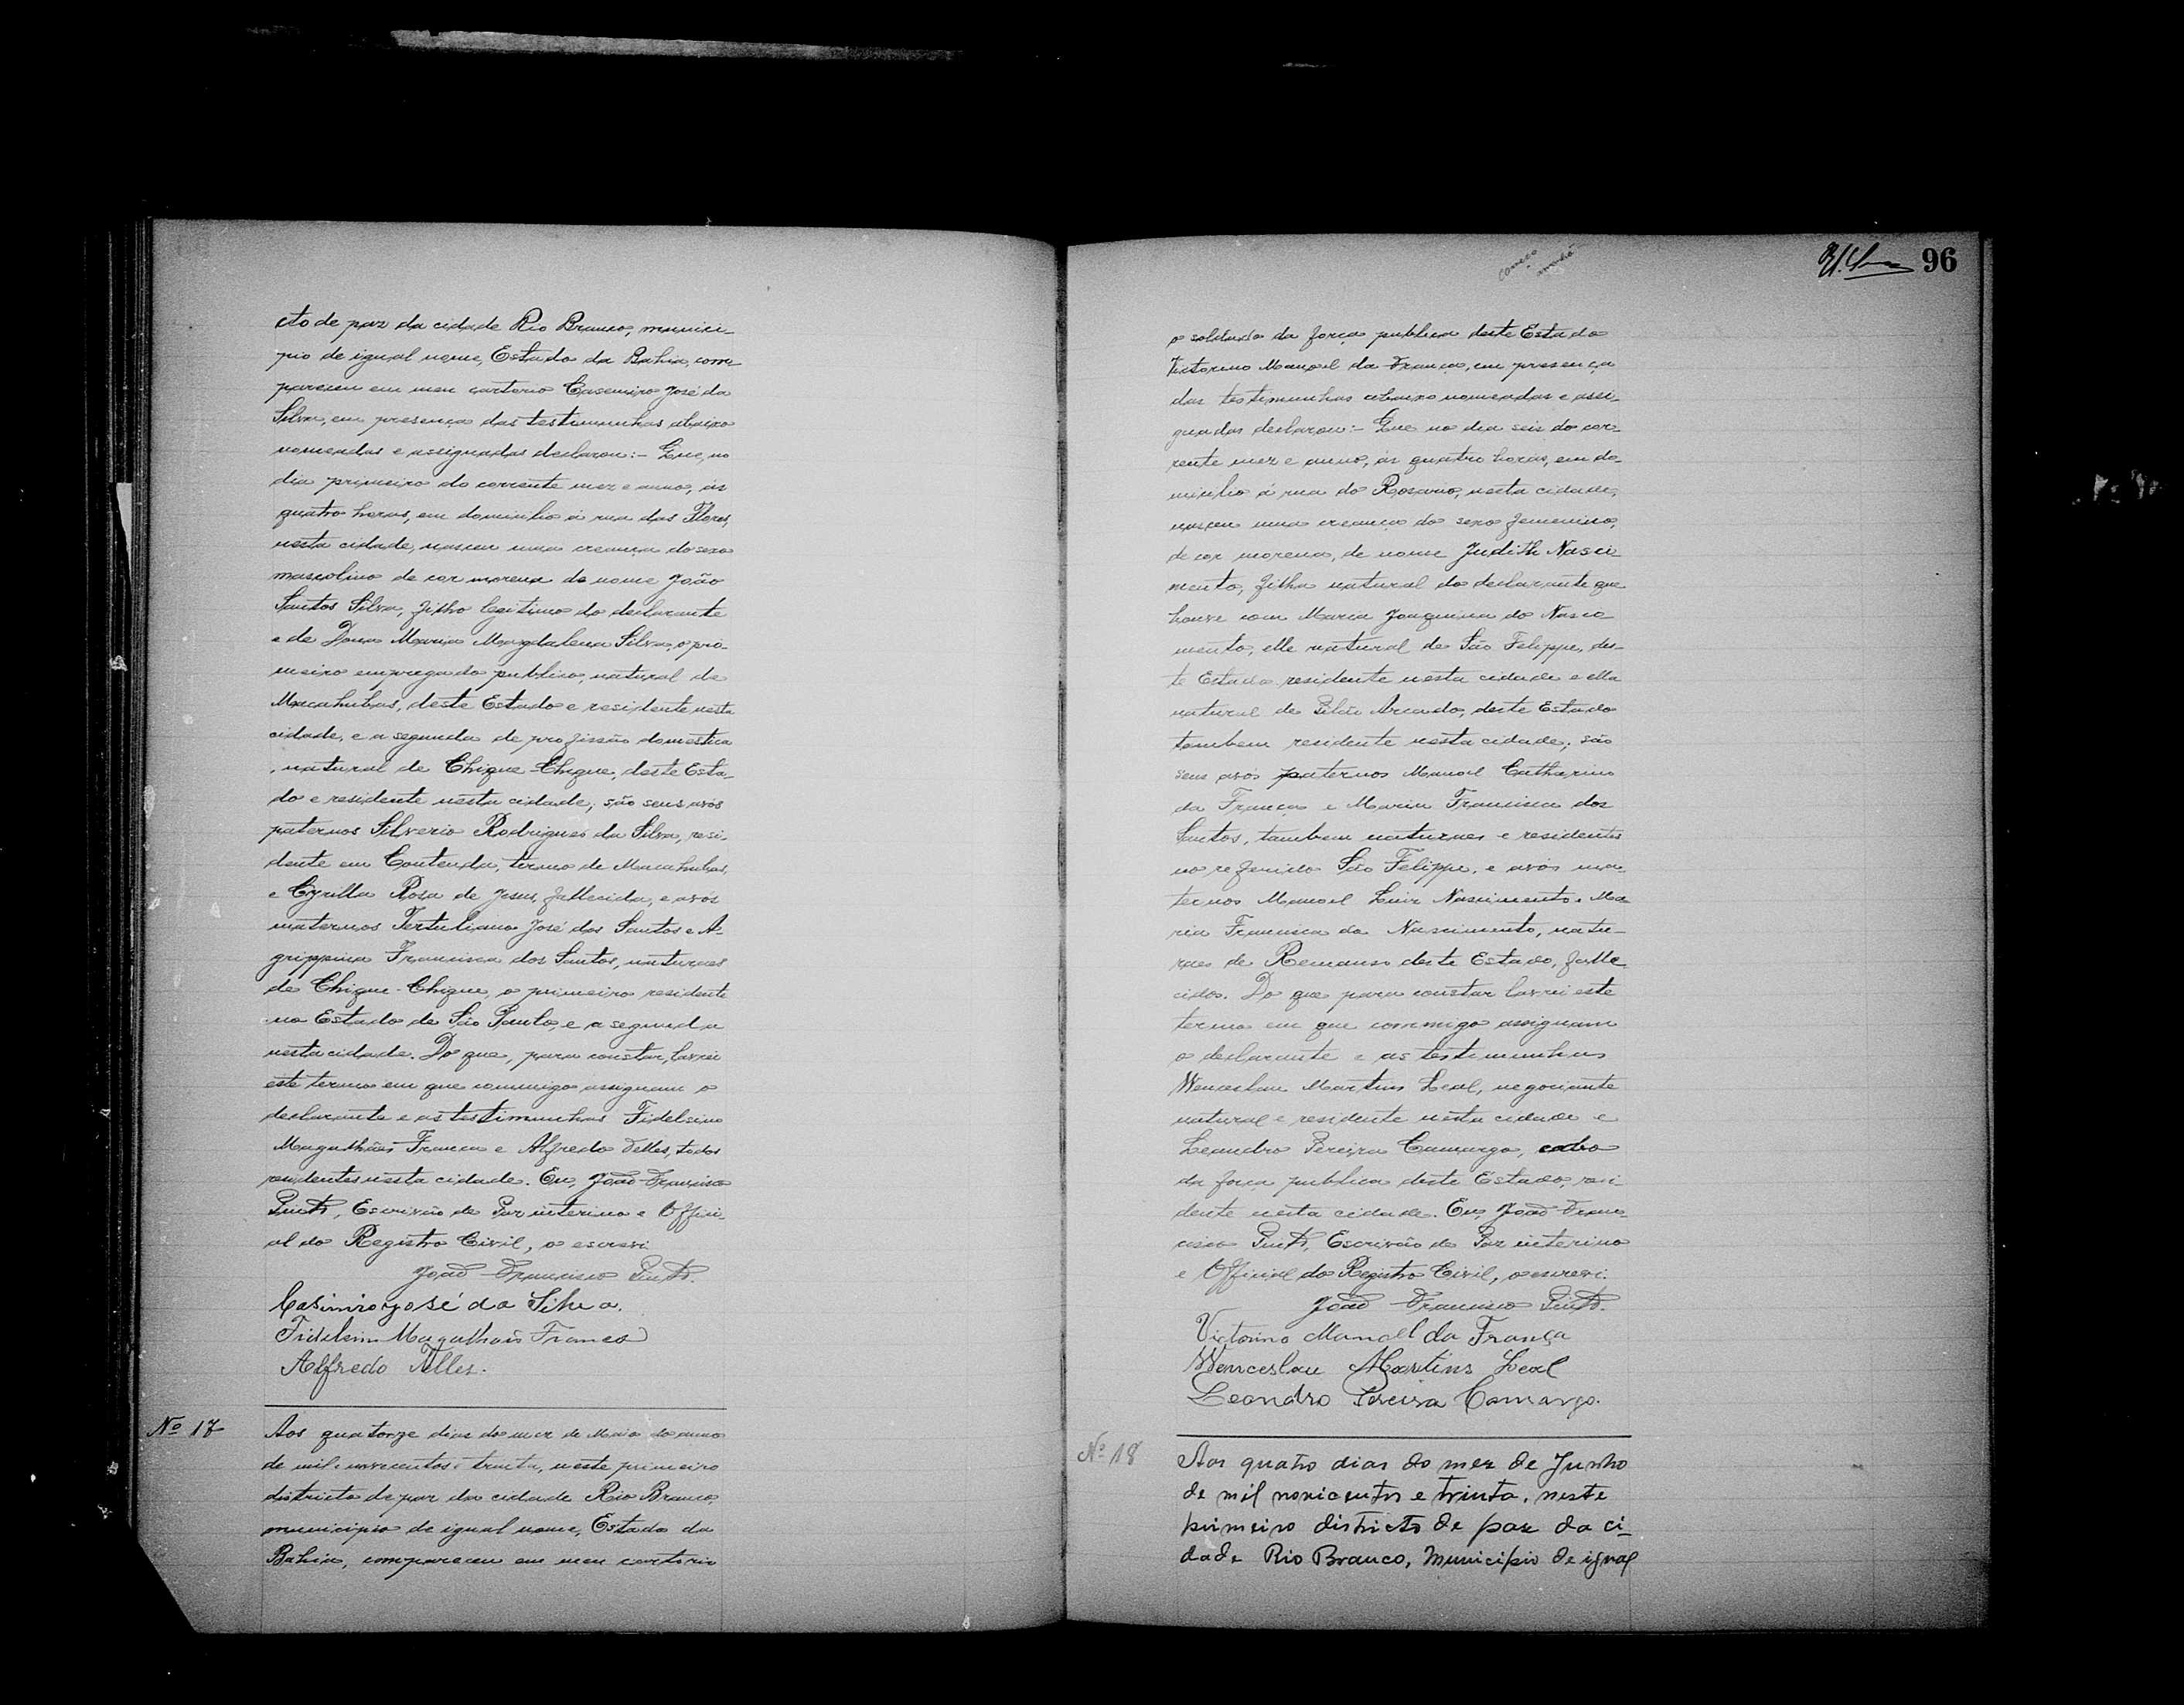 cto de paz da cidade Rio Branco, munici-
pio de igual nome, Estado da Bahia, com-
pareceu em meu cartorio Casemiro José da
Silva, em presença das testimunhas abaixo
nomeadas e assignadas declarou:- Que, no
dia primeiro do corrente mez e anno, ás
quatro horas, em domicilio á rua das Flores,
nesta cidade, nasceu uma creança do sexo
mascolino de cor morena de nome João
Santos Silva, filho legitimo do declarante
e de Dona Maria Magdalena Silva, o pri-
meiro empregado publico, natural de
Macahubas, deste Estado e residente nesta
cidade, e a segunda de profissão domestica
, natural de Chique-Chique, deste Esta-
do e residente nesta cidade; são seus avós
paternos Silverio Rodrigues da Silva, resi-
dente em Contenda, termo de Macahubas,
e Cyrilla Rosa de Jesus, fallecida, e avós
maternos Tertuliano José dos Santos e A-
grippina Francisca dos Santos, naturaes
de Chique-Chique, o primeiro residente
no Estado de São Paulo, e a segunda
nesta cidade. Do que, para constar, lavrei
este termo em que commigo assignam o
declarante e as testimunhas Fidelsino
Magalhães Franca e Alfredo Telles, todos
residentes nesta cidade. Eu, João Francisco
Pinto, Escrivão de Paz interino e Offici-
al do Registro Civil, o escrevi.
João Francisco Pinto.
Casimiro José da Silva.
Magalhães Franca
Alfredo Telles.
Nº 17
Aos quatorze dias do mez de Maio do anno
de mil e novecentos e trinta, neste primeiro
districto de paz da cidade Rio Branco,
municipio de igual nome, Estado da
Bahia, compareceu em meu cartorio
96
o soldado da força publica deste Estado
Victorino Manoel da França, em presença
das testimunhas abaixo nomeadas e assi-
gnadas declarou:- Que no dia seis do cor-
rente mez e anno, ás quatro horas, em do-
micilio á rua do Rosario, nesta cidade,
nasceu uma creança do sexo femenino,
de cor morena, de nome Judith Nasci-
mento, filha natural do declarante que
houve com Maria Joaquina do Nasci-
mento, elle natural de São Felippe, des-
te Estado residente nesta cidade e ella
natural de Pilão Arcado, deste Estado
tambem residente nesta cidade; são
seus avós paternos Manoel Catharino
da França e Maria Francisca dos
Santos, tambem naturaes e residentes
no referido São Felippe, e avós ma-
ternos Manoel Luiz Nascimento e Ma-
ria Francisca do Nascimento, natu-
raes de Remanso deste Estado, falle-
cidos. Do que para constar lavrei este
termo em que commigo assignam
o declarante e as testimunhas
Wenceslau Martins Leal, negociante
natural e residente nesta cidade e
Leandro Pereira Camargo, cabo
da força publica deste Estado, resi-
dente nesta cidade. Eu, João Fran-
cisco Pinto, Escrivão de Paz interino
e Official do Registro Civil, o escrevi.
João Francisco Pinto.
Victorino Manoel da França
Wenceslau Martins Leal
Leandro Pereira Camargo.
Nº 18
Aos quatro dias do mez de Junho
de mil novicentos e trinta, neste
primeiro districto de paz da ci-
dade Rio Branco, Municipio de igual